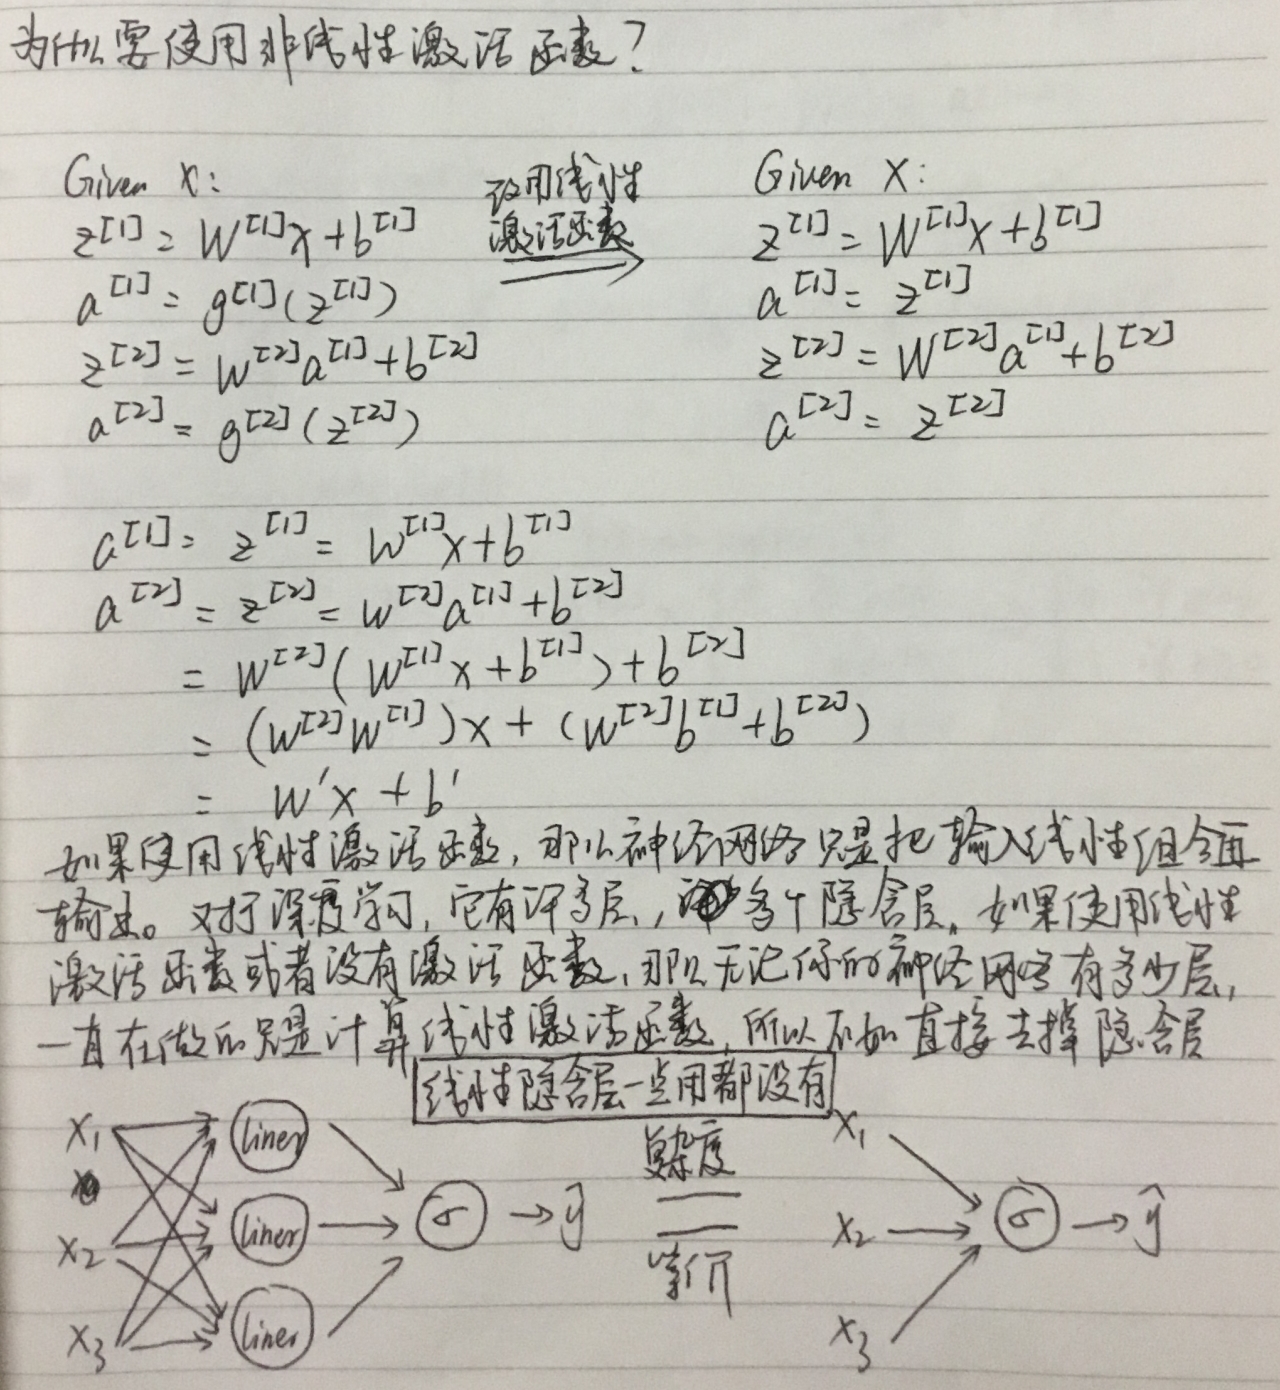 为什么要使用非线性激活函数?
Given x:
z[1] = W[1]x + b[1]
a[1] = g[1](z[1])
z[2] = W[2]a[1] + b[2]
a[2] = g[2](z[2])
改用线性
激活函数
Given x:
z[1] = W[1]x + b[1]
a[1] = z[1]
z[2] = W[2]a[1] + b[2]
a[2] = z[2]
a[1] = z[1] = W[1]x + b[1]
a[2] = z[2] = W[2]a[1] + b[2]
= W[2](W[1]x + b[1]) + b[2]
= (W[2]W[1])x + (W[2]b[1] + b[2])
= W'x + b'
如果使用线性激活函数,那么神经网络只是把输入线性组合再
输出。对于深度学习,它有许多层,多个隐含层。如果使用线性
激活函数或者没有激活函数,那么无论你的神经网络有多少层,
一直在做的只是计算线性激活函数,所以不如直接去掉隐含层
线性隐含层一点用都没有
x1
x2
x3
liner
liner
liner
σ → ŷ
复杂度
=
等价
x1
x2
x3
σ → ŷ